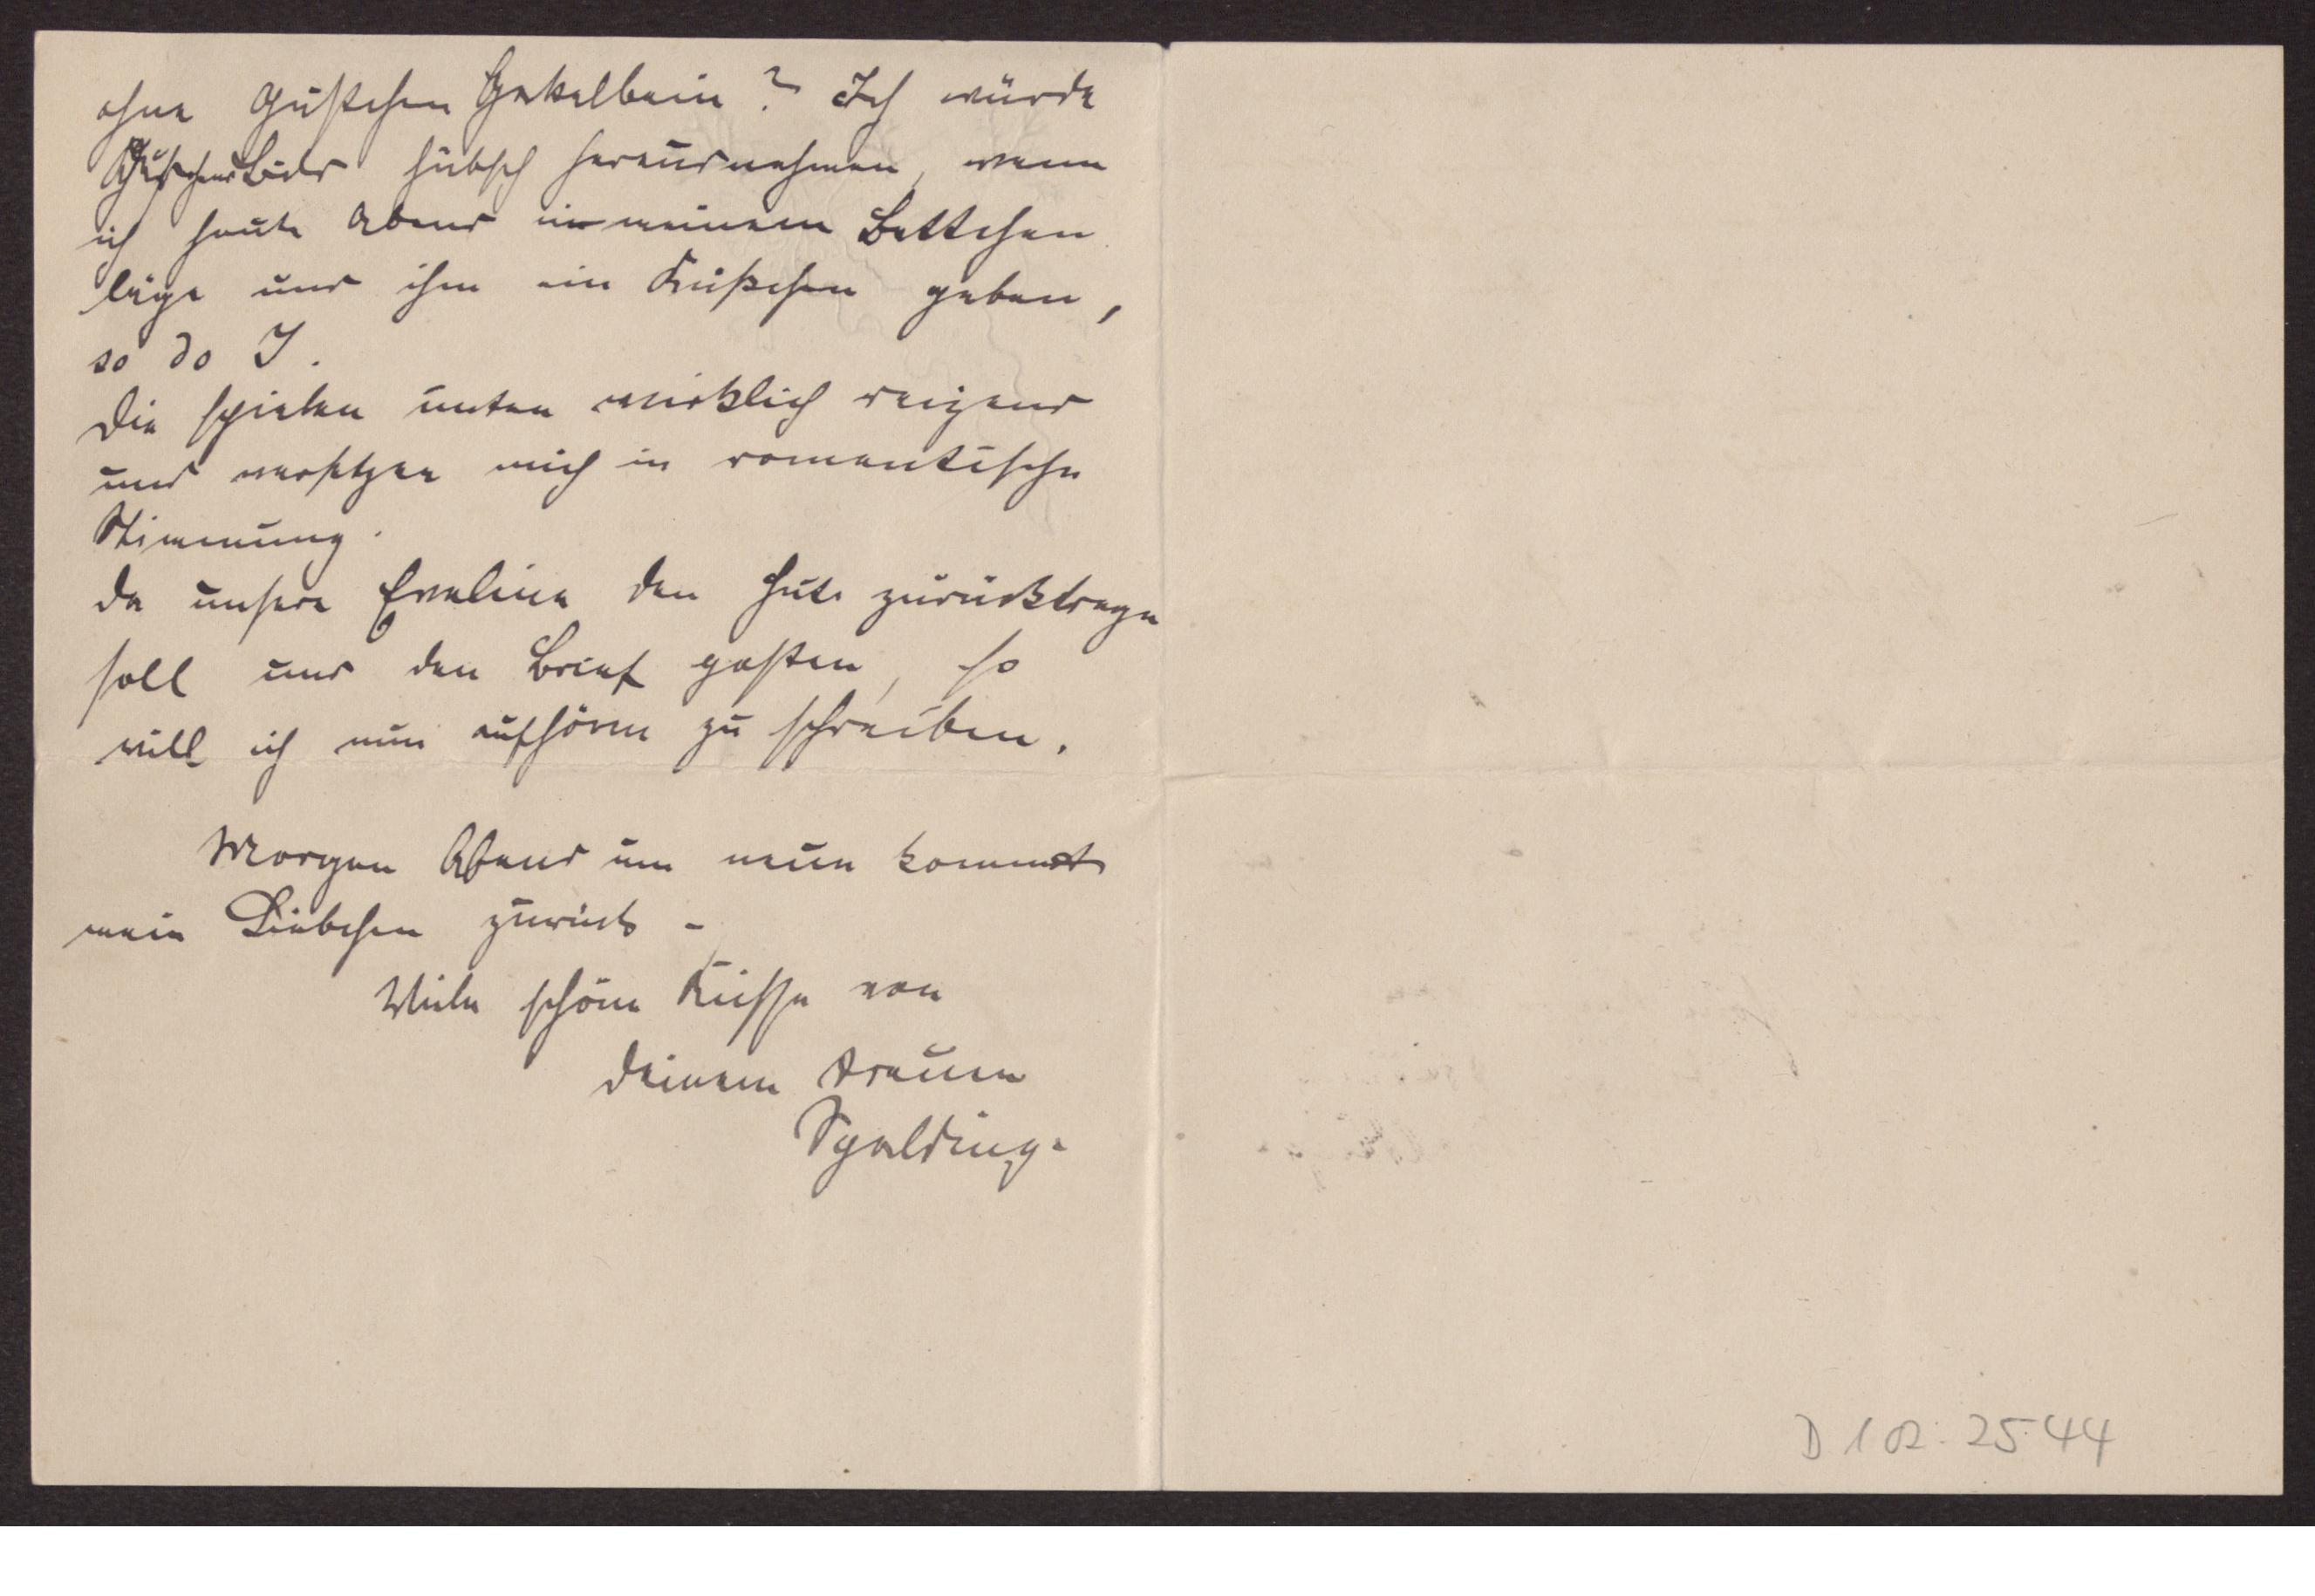 ohne Gustchen Gekelbein? Ich würde
Gustchens Bild hübsch herausnehmen, wenn
ich heute Abend in meinem Bettchen
läge und ihm ein Küßchen geben,
so do I.
Die spielen unten wirklich reizend
und versetzen mich in romantische
Stimmung.
Da unsere Eveline den Hut zurücktragen
soll und den Brief posten, so
will ich nun aufhören zu schreiben.
Morgen Abend um neun kommt
mein Liebchen zurück –
Viele schöne Küsse von
Deinem treuen
Spalding.
D 102:2544